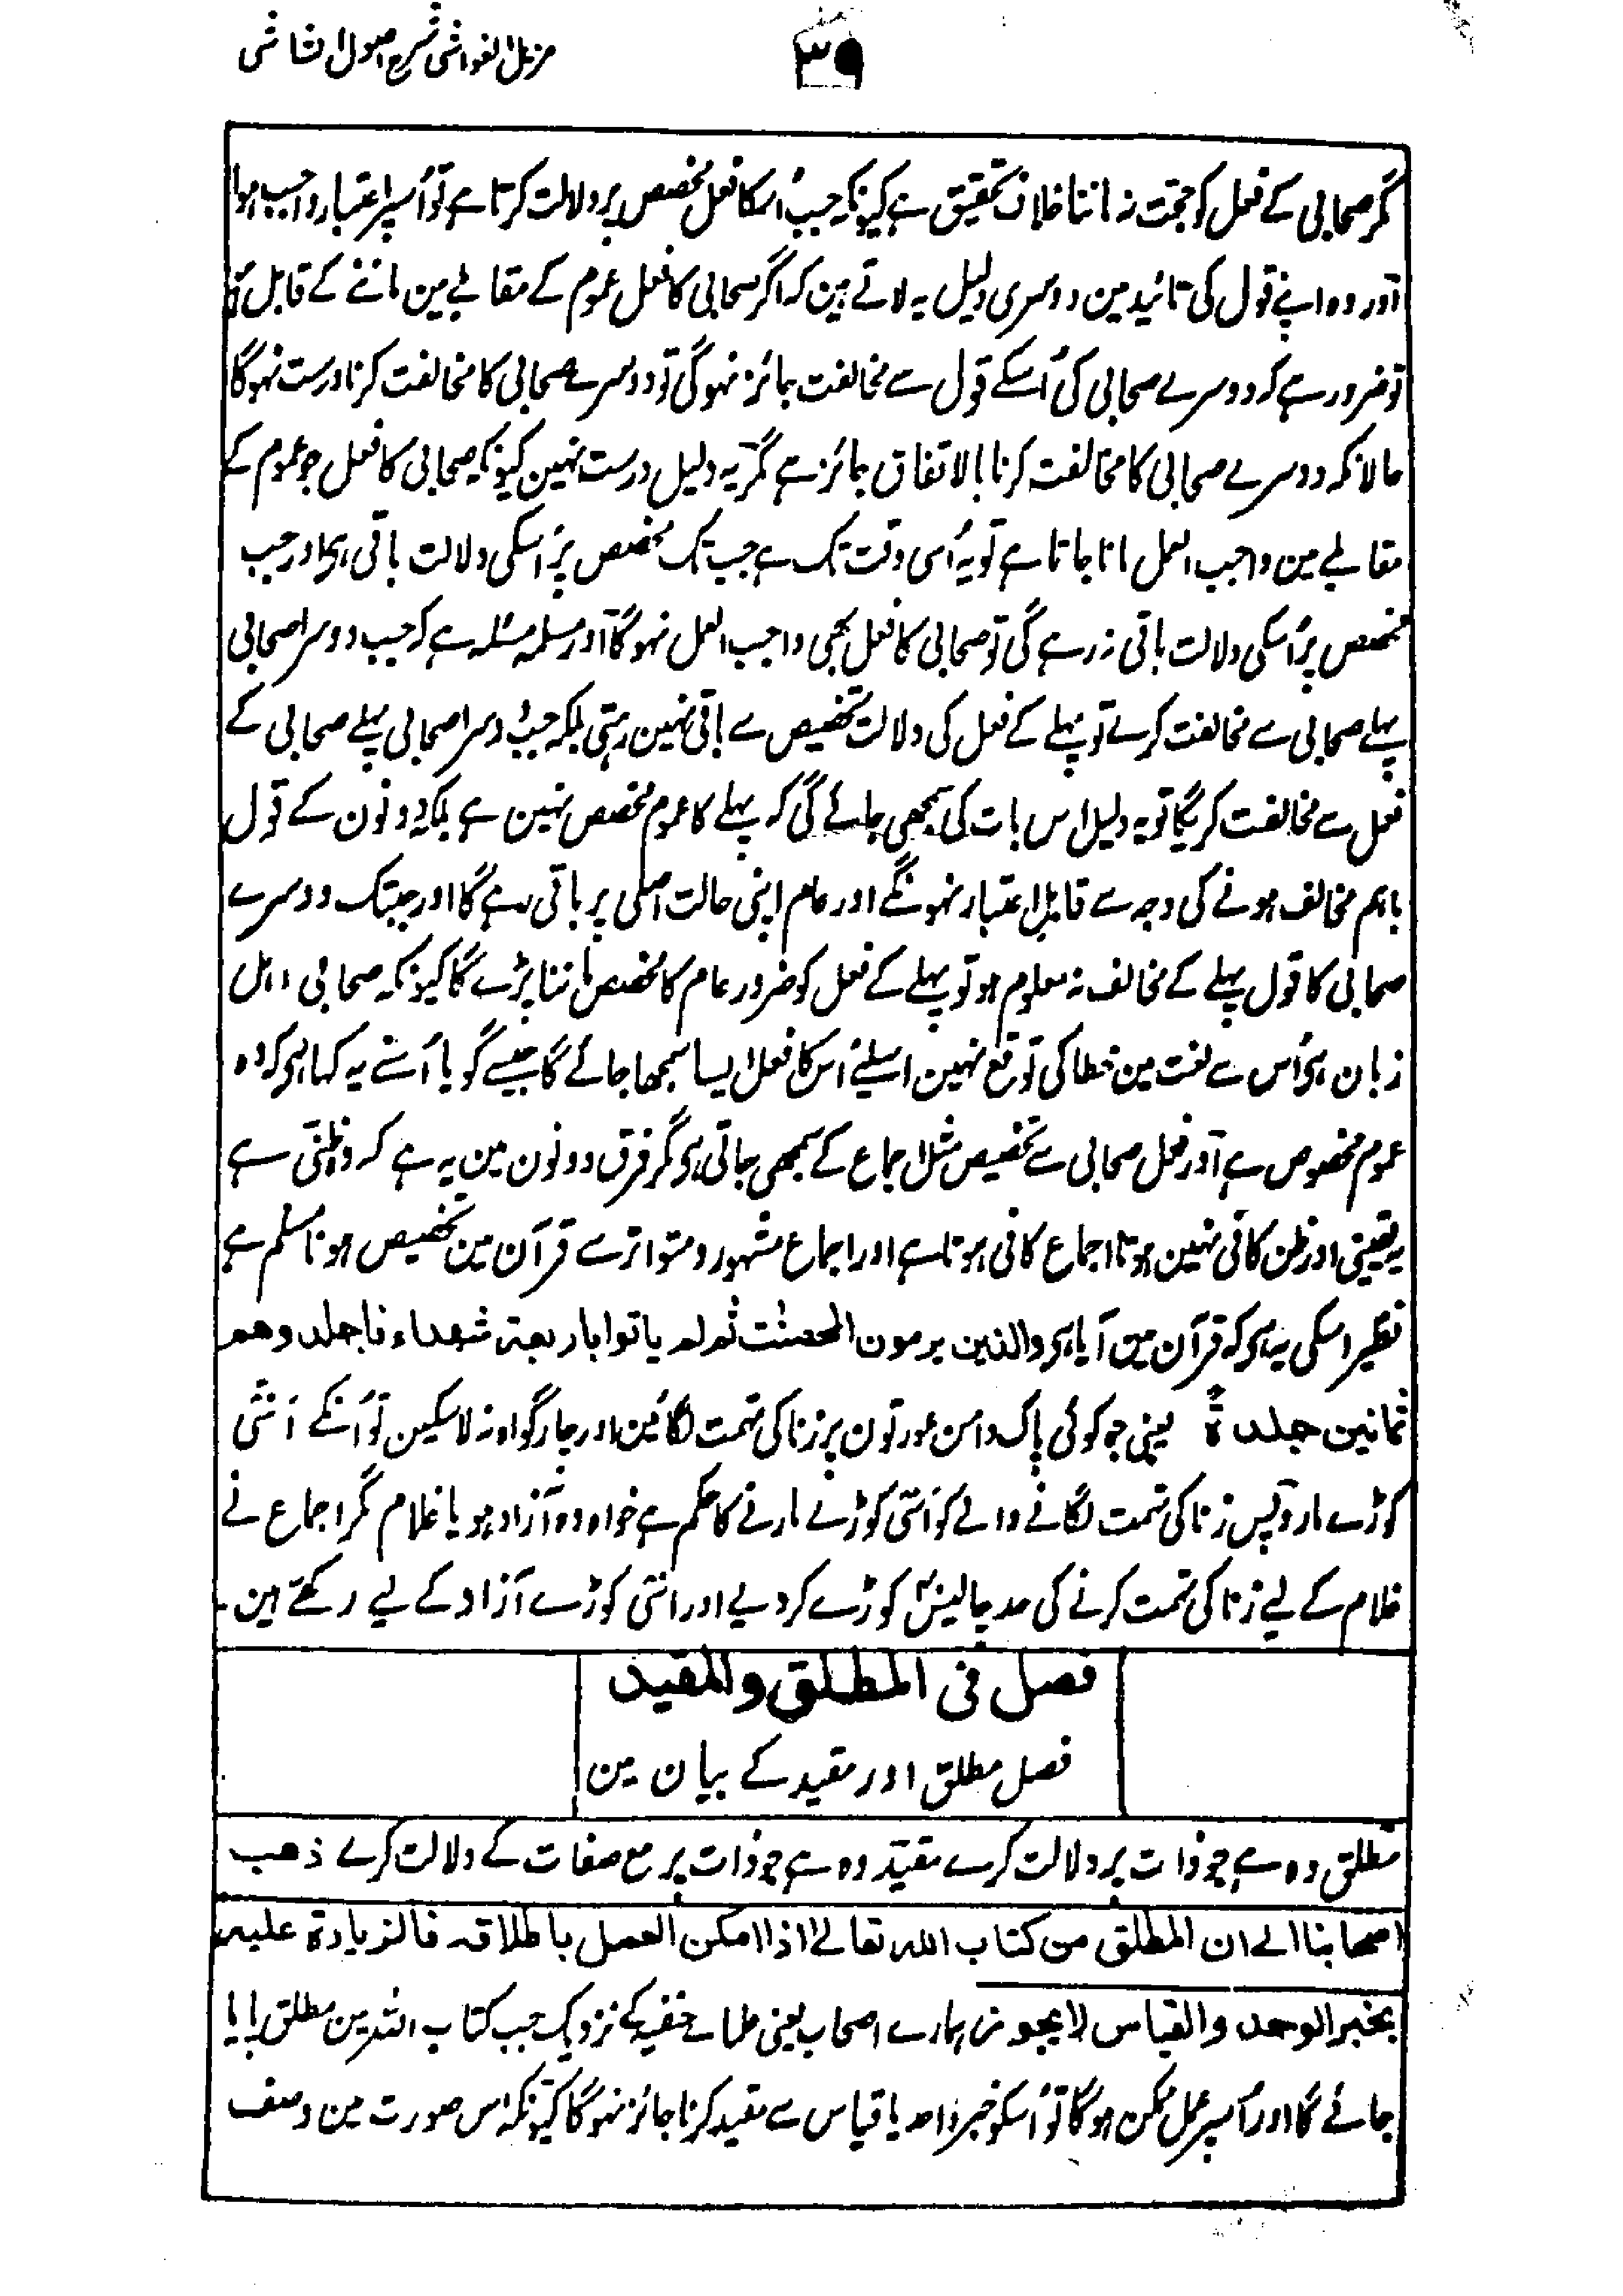 مزیل الغواشی شرح اصول الشاشی
۳۹
مگر صحابی کے فعل کو حجت نہ ماننا خلاف تحقیق ہے کیونکہ جب اُسکا فعل مخصص پر دلالت کرتا ہے تو اُسپر اعتبار واجب ہوا
آور وہ اپنے قول کی تائید مین دوسری دلیل یہ لاتے ہین کہ اگر صحابی کا فعل عموم کے مقابلے مین ماننے کے قابل
تو ضرور ہے کہ دوسرے صحابی کی اُسکے قول سے مخالفت جائز نہوگی تو دوسرے صحابی کا مخالفت کرنا درست نہوگا
حالانکہ دوسرے صحابی کا مخالفت کرنا بالاتفاق جائز ہے مگر یہ دلیل درست نہین کیونکہ صحابی کا فعل جو عموم کے
مقابلے مین واجب العمل مانا جاتا ہے تو یہ اُسی وقت تک ہے جب تک مخصص پر اُسکی دلالت باقی ہی اور جب
مخصص پر اُسکی دلالت باقی نہ رہے گی تو صحابی کا فعل بھی واجب العمل نہوگا آور مسلمہ مسئلہ ہے کہ جب دوسرا صحابی
پہلے صحابی سے مخالفت کرے تو پہلے کے فعل کی دلالت تخصیص سے باقی نہین رہتی بلکہ جب دوسرا صحابی پہلے صحابی کے
فعل سے مخالفت کریگا تو یہ دلیل اس بات کی سمجھی جائے گی کہ پہلے کا عموم مخصص نہین ہے بلکہ دونون کے قول
باہم مخالف ہونے کی وجہ سے قابل اعتبار نہونگے اور عام اپنی حالت اصلی پر باقی رہے گا اور جبتک دوسرے
صحابی کا قول پہلے کے مخالف نہ معلوم ہو تو پہلے کے فعل کو ضرور عام کا مخصص ماننا پڑے گا کیونکہ صحابی اہل
زبان ہی اُس سے لغت مین خطا کی توقع نہین اسلیے اُس کا فعل ایسا سمجھا جائے گا جیسے گویا اُسنے یہ کہا ہی کہ وہ
عموم مخصوص ہے آور فعل صحابی سے تخصیص مثل اجماع کے سمجھی جاتی ہی مگر فرق دونون مین یہ ہے کہ وہ ظنی ہے
یہ یقینی اور ظن کافی نہین ہوتا اجماع کافی ہوتا ہے اور اجماع مشہور و متواتر سے قرآن مین تخصیص ہونا مسلم ہے
نظیر اسکی یہ ہی کہ قرآن مین آیا ہی والذین یرمون المحصنٰت ثم لم یاتوا باربعۃ شہداء فاجلدوھم
ثمانین جلدۃ یعنی جو کوئی پاک دامن عورتون پر زنا کی تہمت لگائین اور چار گواہ نہ لا سکین تو اُنکے اَسّی
کوڑے مارو پس زنا کی تہمت لگانے والے کو اَسّی کوڑے مارنے کا حکم ہے خواہ وہ آزاد ہو یا غلام مگر اجماع نے
غلام کے لیے زنا کی تہمت کرنے کی حد چالیس کوڑے کر دیے اور اَسّی کوڑے آزاد کے لیے رکھتے ہین۔
فصل فی المطلق والمقید
فصل مطلق اور مقید کے بیان مین
مطلق وہ ہے جو ذات پر دلالت کرے مقید وہ ہے جو ذات پر مع صفات کے دلالت کرے ذھب
اصحابنا الے ان المطلق من کتاب اللہ تعالے اذا امکن العمل باطلاقہ فالزیادۃ علیہ
بخبر الوحد والقیاس لا یجوز ہمارے اصحاب یعنی علمائے حنفیہ کے نزدیک جب کتاب اللہ مین مطلق پایا
جائے گا اور اُسپر عمل ممکن ہوگا تو اُسکو خبر واحد یا قیاس سے مقید کرنا جائز نہوگا کیونکہ اس صورت مین وصف